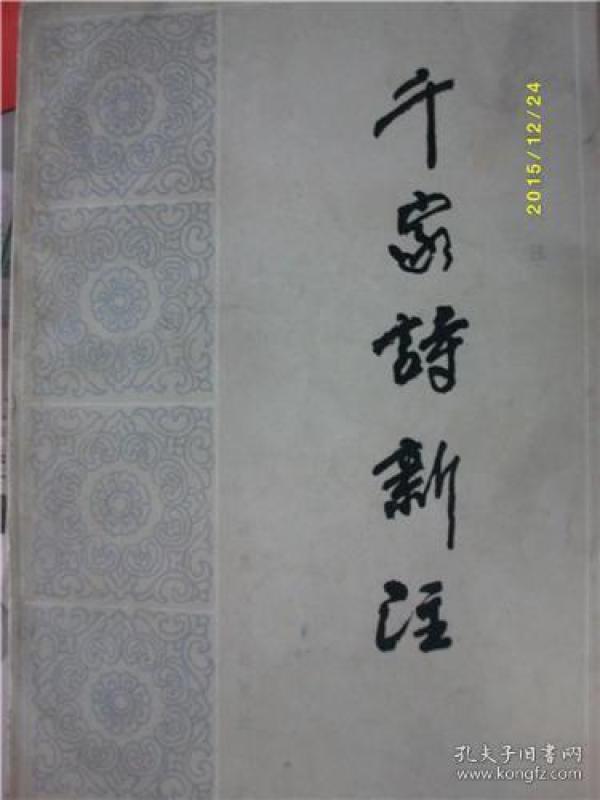 千家詩新注
2015/12/24
孔夫子旧書网
www.kongfz.com